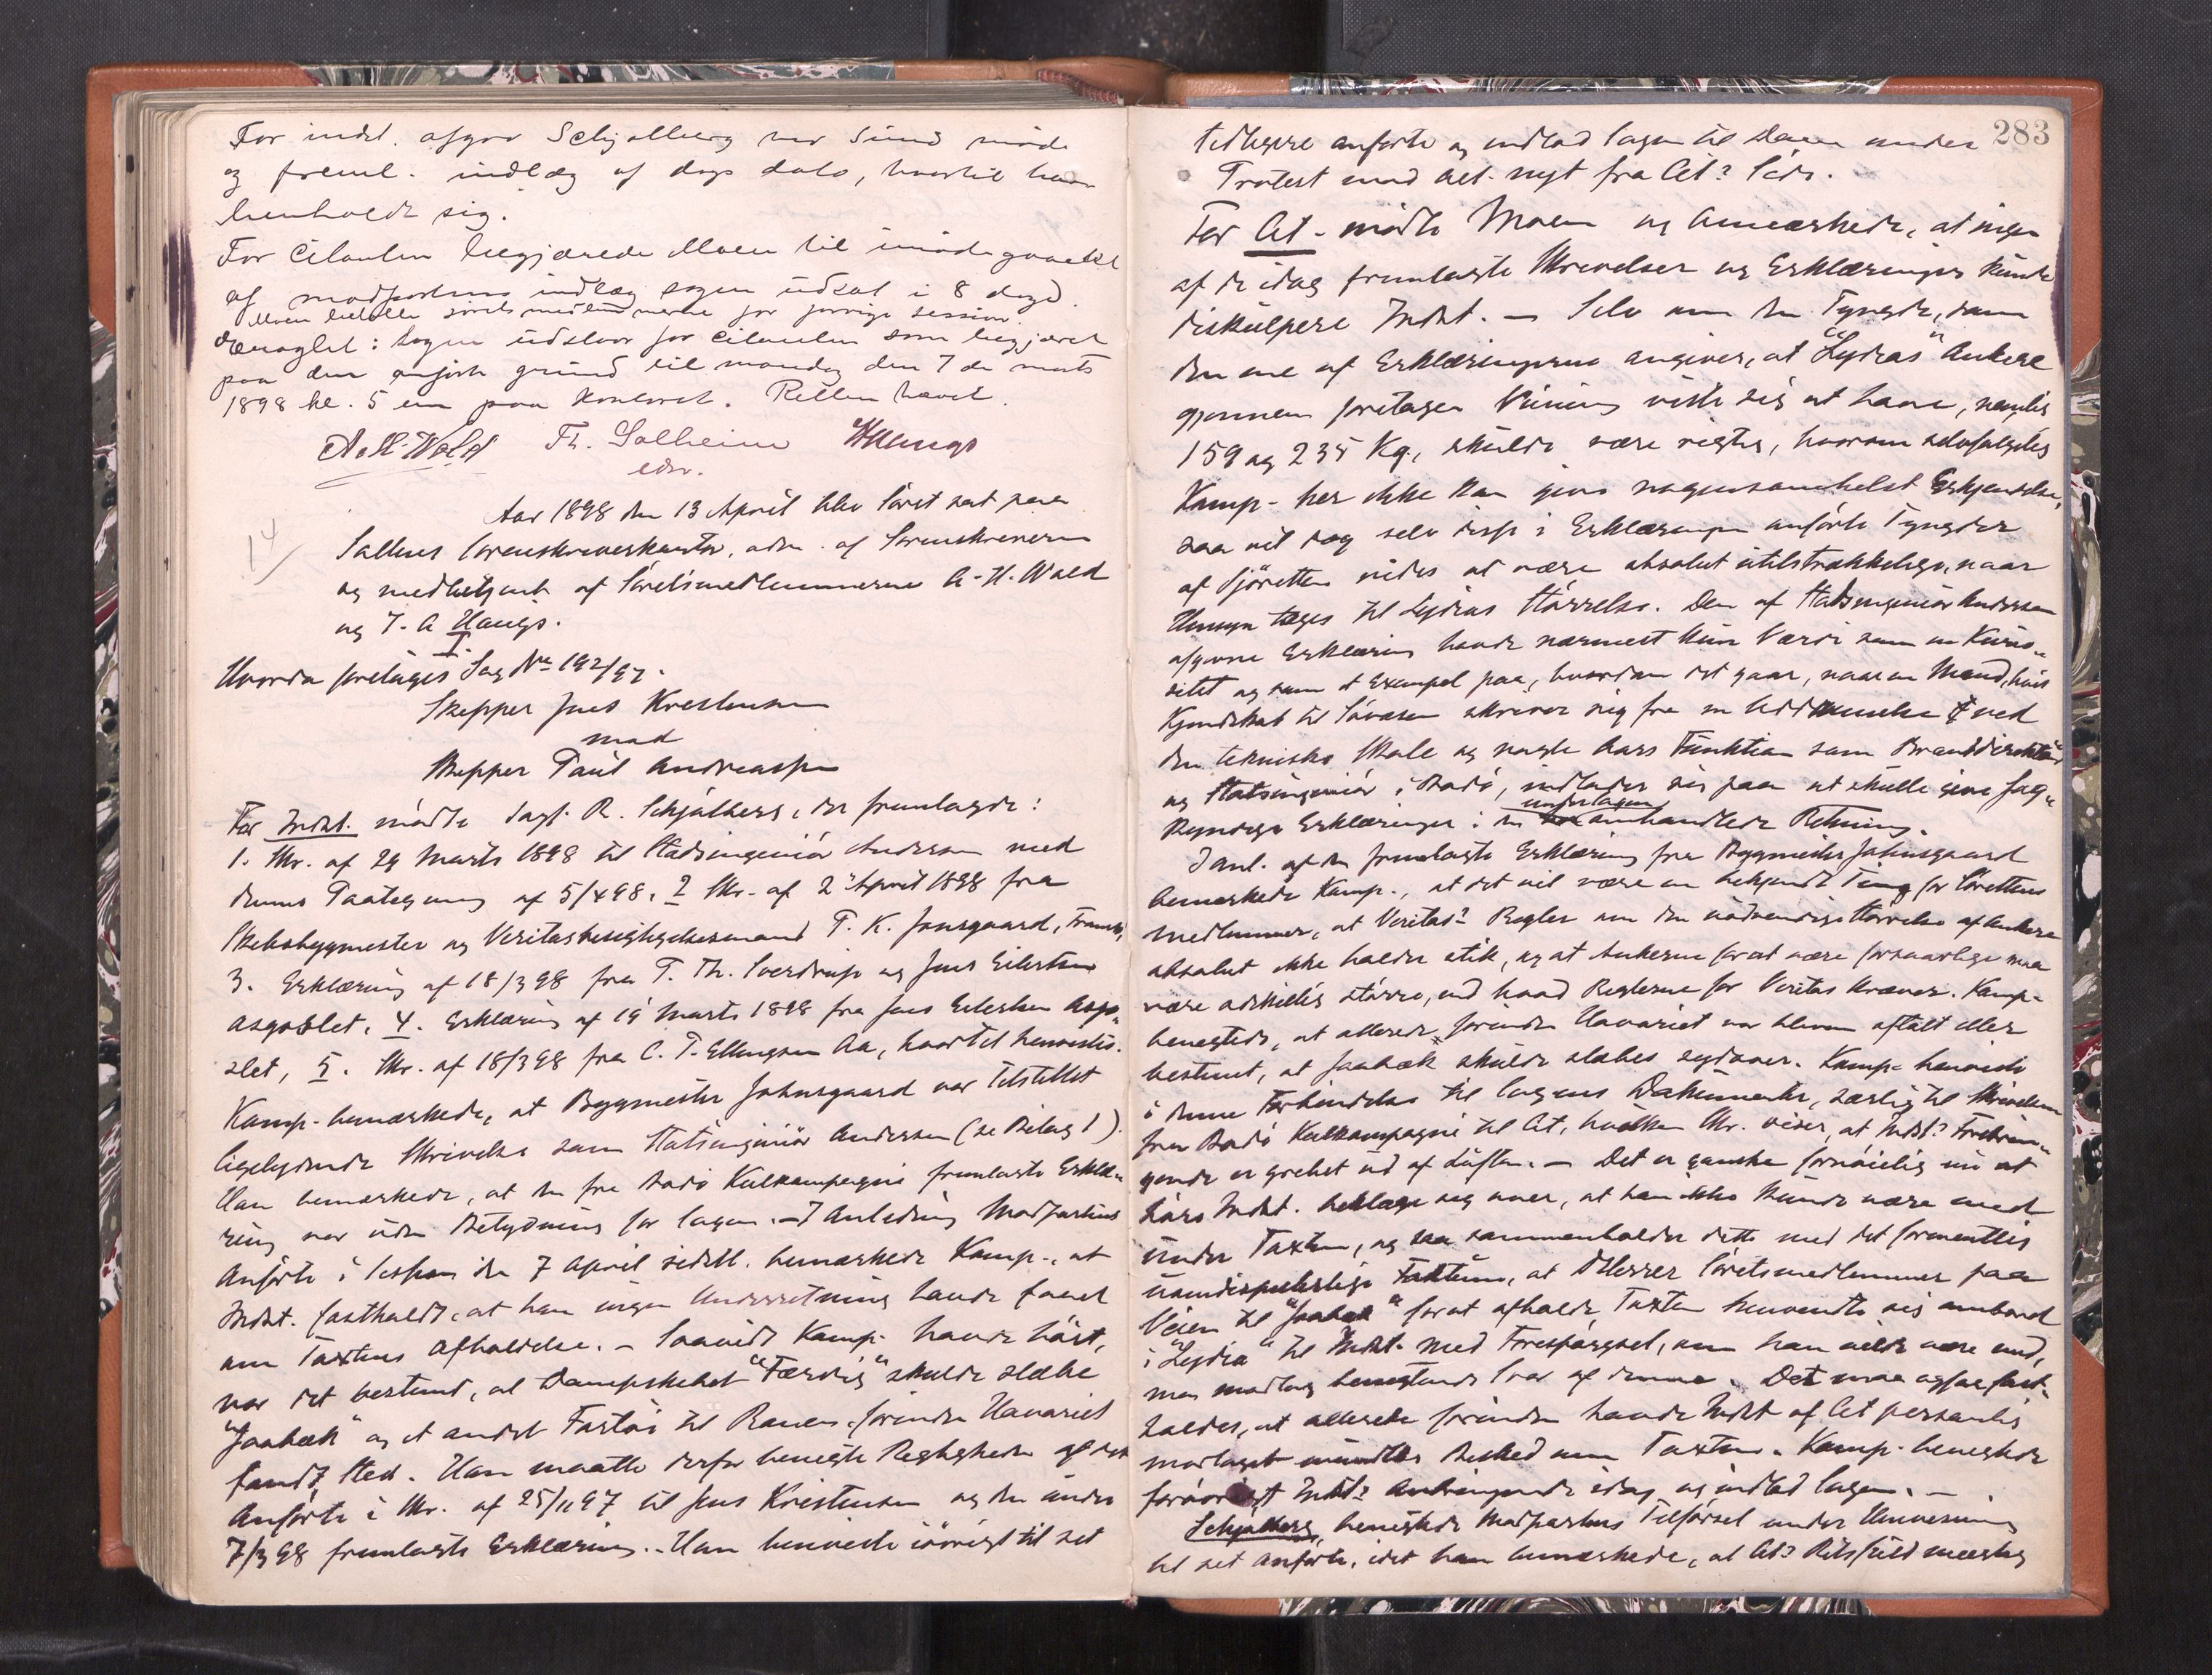 For indst. afgav Schjølberg ner Sund møde
og freml. indlæg af dags dato, hvortil han
henholdt sig.
For Citanten begjærede Moen til imødegaaelse
af modpartens indlæg sagen udsat i 8 dage.
Moen bidelte søretsmedlemmerne for forrige session.
Eragtet: Sagen udstaar for Citanten som begjæret
paa den anførte grund til mandag den 7de marts
1898 kl. 5 em paa kontoret. Retten hævet.
A. H. Wold Th. Solheim Haugs
edsv.
14
Aar 1898 den 13 April blev Søret sat paa
Saltens Sorenskriverkontor, adm. af Sorenskriveren
og medbetjent af Søretsmedlemmerne A. H. Wold
og J. A Haugs.
I.
Hvorda foretages Sag No 192/97.
Skipper Jens Kristensen
mod
Skipper Paul Andreassen
For Indst. mødte Sagf. R. Schjølberg, der fremlagde:
1. Skr. af 29 Marts 1898 til Stadsingeniør Andersen med
dennes Paategning af 5/4 98. 2 Skr. af 2 April 1898 fra
Skibsbygmester og Veritasbesigtigelsesmand P. K. Jonsgaard,
3. Erklæring af 18/3 98 fra P. Th. Sverdrup og Jens Eilertsen
4. Erklæring af 19 Marts 1898 fra Jens Eilertsen
5. Skr. af 18/3 98 fra C. T. Ellingsen Aa, hvortil henvistes.
Komp. bemærkede, at Bygmester Johnsgaard var tilstillet
ligelydende Skrivelse som Statsingeniør Andersen (se Bilag 1).
Han bemærkede, at den fra Bodø Kulkompagni fremlagte Erklæ-
ring var uden Betydning for Sagen. - I Anledning Modpartens
Anførte i Session den 7 April sidstl. bemærkede Komp., at
Indst. fastholdt, at han ingen Underretning havde faaet
om Taxtens Afholdelse. - Saavidt Komp. havde hørt,
var det bestemt, at Dampskibet "Færdig" skulde slæbe
"Jaabæk" og et andet Fartøi til Ranen, førinden Havariet
fandt Sted. Han maatte derfor benegte Rigtigheden af det
Anførte i Skr. af 25/11 97 til Jens Kristensen og den under
7/3 98 fremlagte Erklæring. - Han henviste iøvrigt til det
283
tidligere anførte og indlod Sagen til Doms under
Protest mod alt nyt fra Cit? Side.
For Cit. mødte Moen og bemærkede, at ingen
af de idag fremlagte Skrivelser og Erklæringer kunde
diskulpere Indst. - Selv om den Tyngde, som
den ene af Erklæringerne angiver, at "Lydias" Ankere
gjennem foretagen Veining viste sig at have, nemlig
159 og 235 Kg., skulde være rigtig, hvorom selvfølgelig
Komp. her ikke kan give nogensomhelst Erkjendelse,
saa vil dog selv disse i Erklæringen anførte Tyngder
af Sjøretten vides at være absolut utilstrækkelige, naar
Hensyn tages til Lydias Størrelse. Den af Stadsingeniør Andersen
afgivne Erklæring havde nærmest kun Værdi som en Kurio-
sitet og som et Exempel paa, hvordan det gaar, naar en Mand, hvis
Kjendskab til Søvæsen skriver sig fra en Uddannelse ved
den tekniske Skole og nogle Aars Funktion som Branddirektør
og Stadsingeniør i Bodø, indlader sig paa at skulle give fag-
kyndige Erklæringer i den omhandlede Retning.
I Anl. af den fremlagte Erklæring fra Bygmester Johnsgaard
bemærkede Komp., at det vil være en bekjendt Ting for Sørettens
Medlemmer, at Veritas? Regler om den nødvendige Størrelse af Ankere
absolut ikke holder stik, og at Ankerne for at være forsvarlige maa
være adskillig større, end hvad Reglerne for Veritas kræver. Komp.
benegtede, at allerede førinden Havariet var bleven aftalt eller
bestemt, at Jaabæk skulde slæbes sydover. Komp. henviste
i denne Forbindelse til Sagens Dokumenter, særlig til Skrivelsen
fra Bodø Kulkompagni til Cit, hvilken Skr. viser, at Indst? Frebrin-
gende er grebet ud af Luften. - Det er ganske fornøielig nu at
høre Indst. beklage sig over, at han ikke kunde være med
under Taxten, og saa sammenholde dette med det formentlig
uomdisputerlige Faktum, at DHerrer Søretsmedlemmer paa
Veien til "Jaabæk" for at afholde Taxten henvendte sig ombord
i "Lydia" til Indst. med Forespørgsel, om han vilde være med,
men modtog benegtende Svar af denne. Det maa ogsaa fast-
holdes, at allerede førinden havde Indst af Cit personlig
modtaget mundtlig Besked om Taxten. Komp. benegtede
forøvrigt Indst? Anbringende idag og indlod Sagen. -
Schjølberg, benegtede Modpartens Tilførsel under Henvisning
til det anførte, idet han bemærkede, at Cit? Retsfuldmægtig